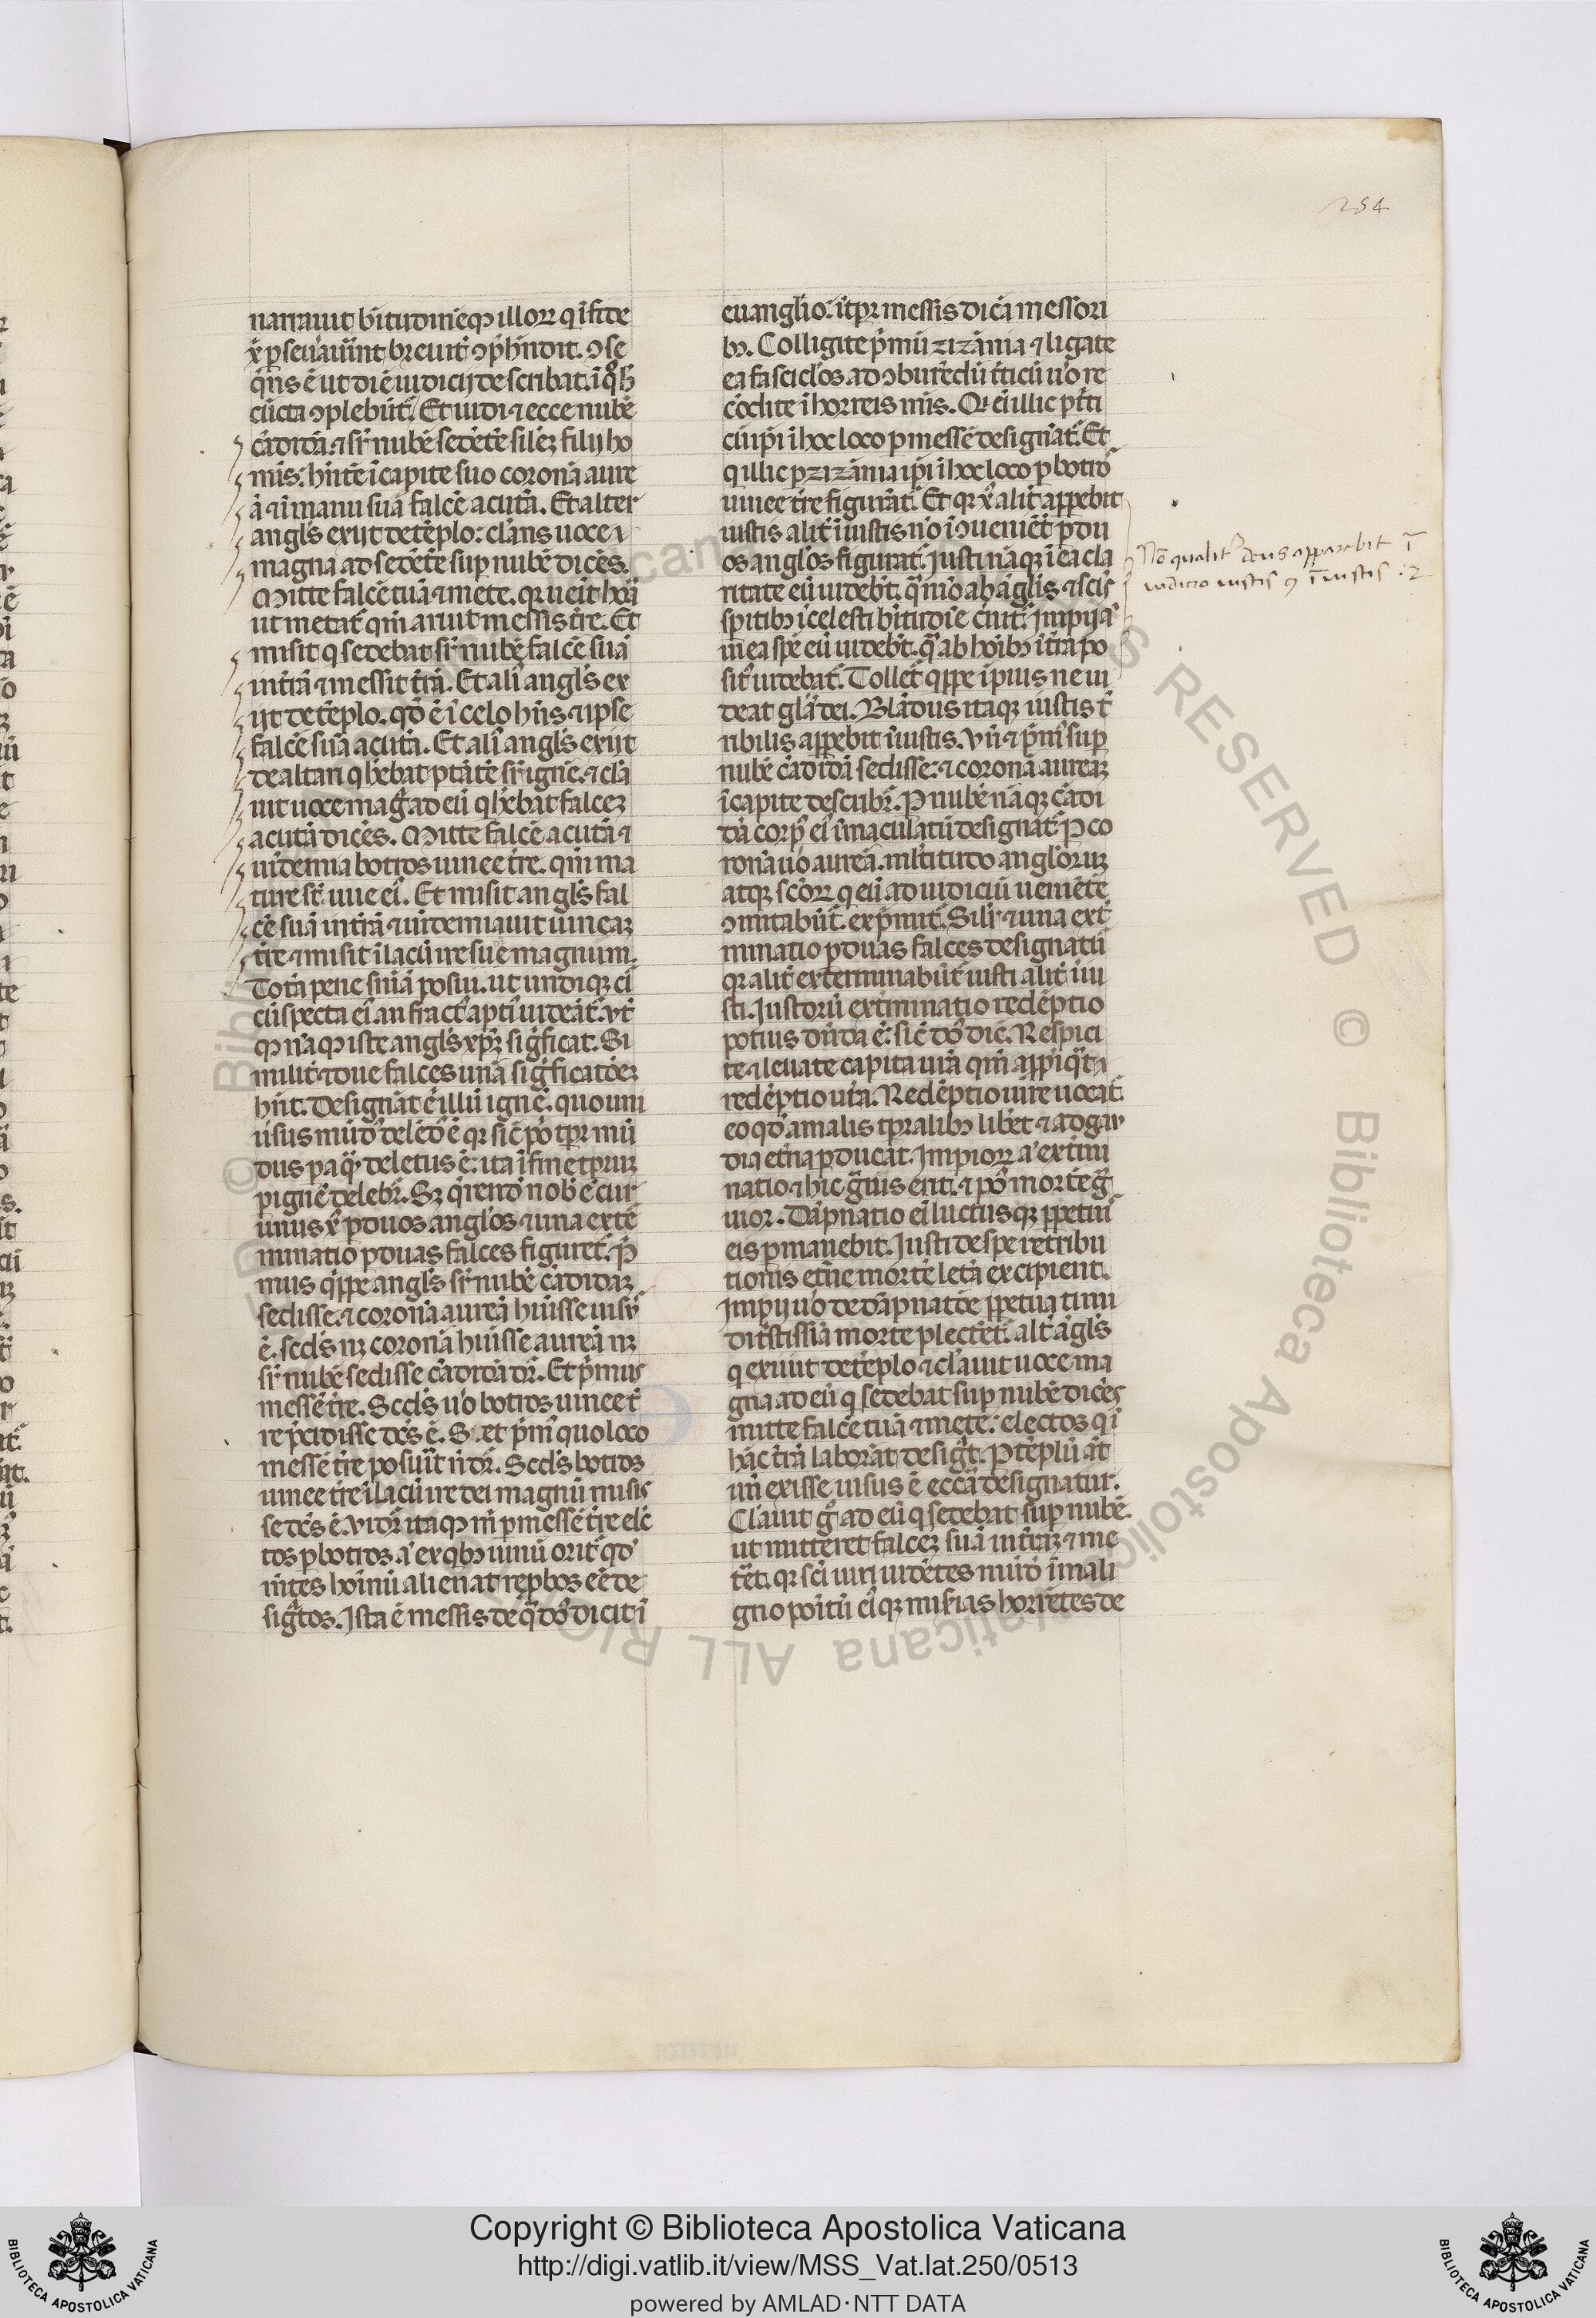 254
narrauit b̄itudinēq̄ illorꝝ q i fide
x̄ p̱seuauūnt breuit̄ ꝯp̱hndit. ꝯse
q̄ns ē ut diē iudicij describat. i q̊ h̄
cūcta ꝯplebūt̄. Et uidi ⁊ ecce nubē
cādidā. ⁊ sr̄ nubē sedētē silēꝫ filij ho
mīs: hn̄tē ī capite suo coronā aure
ā ⁊ ī manu suā falcē acutā. Et alter
angl̄s exijt de tēplo: clāns uoce
magna ad sedētē suꝑ nubē dicēs.
Mitte falcē tuā ⁊ mete. qꝛ ueīt horā
ut metat̄ qm̄ aruit messis tr̄e. Et
misit q sedebat sr̄ nubē falcē suā
in trā ⁊ messit trā. Et alī angl̄s ex
ijt de tēplo. qd̄ ē ī celo hn̄s ⁊ ipse
falcē suā acutā. Et alī angl̄s exijt
de altari q hēbat ptātē sr̄ ignē. ⁊ clā
uit uoce maḡ ad eū q hēbat falceꝫ
acutā dicēs. Mitte falcē acutā ⁊
uīdemia botros uinee tr̄e. qm̄ ma
ture st̄ uue ei̅. Et misit angl̄s fal
cē suā in trā ⁊ uīdemiauit uineaꝫ
tr̄e ⁊ misit ī lacū ire sue magnum.
Totā pene sn̄iā posui. ut undiqꝫ cī
cūspecta ei̅ anfract̄ apti̅ uideāt̄. Ut̄
q̄ nāq̄ iste angl̄s xp̄ꝫ sig̅ficat. Si
milit̄ ⁊ due falces unā sig̅ficatōeꝫ
hn̄t. Designāt ēi illū ignē. quo uni
ūsus mūd̄ delēd̄ ē qꝛ sic̄ p̊ tp̄ꝛ mū
dus p aq̄ deletus ē: ita ī fine tp̄ꝛuꝫ
p ignē deleb̄r. Sꝫ q̄rend̄ nob̄ ē cur
unus x̄ p duos angl̄os ⁊ una extē
minatio p duas falces figuret̄. P̄
mus q̄ppe angl̄s sr̄ nubē cādidaꝫ
sedisse. ⁊ coronā aureā huisse uisꝰ
ē. scdꝰs nꝫ coronā huisse aureā nꝫ
sr̄ nubē sedisse cādidā dr̄. Et p̄mus
messē tr̄e. Scdꝰs ů botros uinee t̄
re p̄cidisse dēs ē. S. et p̄mꝰ quo loco
messē tr̄e posuit̄ n̄ dr̄. Scdꝰs botros
uinee tr̄e ī lacū ire dei magnū misis
se dēs ē. Vidr̄ itaq̄ m̄ p messē tr̄e elc̄
tos p botros ā ex qbꝫ uinū orit̄ qd̄
mītes hoīnū alienat rep̱bos eē de
sig̅tos. Ista ē messis de q̄ dō dicit ī
euangl̄io: ī tp̄ꝛ messis dicā messori
bꝫ. Colligite p̄mū zizānia ⁊ ligate
ea fascicl̄os ad ꝯburēdū t̄ticū u̅o re
cōdite ī horreis mīs. Qꝛ ēi illic p̱ t̄ti
cū ip̄i ī hoc loco p messē designāt̄. Et
q illic p zizānia ip̄i ī hoc loco p botro
uinee tr̄e figurāt̄. Et qꝛ x̄ alit̄ apꝑebit
iustis alit̄ ī iustis n̅o īꝯueniēt̄ p du
os angl̄os figurat̄. Justi nāqꝫ ī ea cla
ritate eū uideb̄t. q̄ m̊ ab āglis. ⁊ scīs
spitibꝫ ī celesti b̄itudīe c̄nit̄. Impij ā
ī ea spē eū uideb̄t. q̄ ab hoībꝫ ī trā po
sit̄ uidebat̄. Tollet̄ q̄ppe ipius ne ui
deat glā dei. Blādus itaqꝫ iustis t̄
ribilis apꝑebit ī iustis. Vn̄ ⁊ p̄m̄ suꝑ
nubē cādidā sedisse: ⁊ coronā aureaꝫ
ī capite describr̄. P nubē nāqꝫ cādi
dā corpꝰ ei̅ ī maculatū designat̄. P co
ronā u̅o aureā. ml̄titudo angl̄oruꝫ
atqꝫ scōꝝ q eū ad iudiciū uenietē
ꝯmitabūt̄. exp̄mit̄. Silr̄ ⁊ una ext̄
minatio p duas falces designat̄
qꝛ alit̄ exterminabūt̄ iusti alit̄ īiu
sti. Justorū ext̄minatio redēptio
potius dn̄da ē: sic̄ dō dic̄. Respici
te ⁊ leuate capita ur̄a qm̄ app̱iq̄t
redēptio ur̄a. Redēptio iure uocat̄.
eo qd̄ a malis tp̄ꝛalibꝫ libēt ⁊ ad gau
dia et̄na p̱ducāt. Impiorꝝ ā ext̄mi
natio ⁊ hic g̅uis erit. ⁊ p̊ mortē g̅
uior. Dāpnatio ēi luctusqꝫ p̱petuꝰ
eis p̱manebit. Justi de spe retribu
tionis et̄ne mortē letā excipient.
Impij u̅o de dāpnatōe p̱petua timi
di t̄stissīa morte plectēt̄. alt̄ āgl̄s
q exiuit de tēplo ⁊ clāuit uoce ma
gna ad eū q sedebat suꝑ nubē dicēs
mitte falcē tuā ⁊ mete: electos q ī
hāc trā laborāt desig̅t. P tēplū āt
un̄ exisse uisus ē ecc̄a designatur.
Clāuit g̊ ad eū q sedebat suꝑ nubē.
ut mitteret falceꝫ suā in trāꝫ ⁊ me
tēt. qꝛ scī uiri uidētes mūd̄ ī mali
gno poītū eiꝰqꝫ mis̄ias horrētes de
No qualit̄ deus apparebit ī
iudicio iustis ⁊ īiustis :2
Copyright © Biblioteca Apostolica Vaticana
http://digi.vatlib.it/view/MSS_Vat.lat.250/0513
powered by AMLAD·NTT DATA
BIBLIOTECA APOSTOLICA VATICANA
BIBLIOTECA APOSTOLICA VATICANA